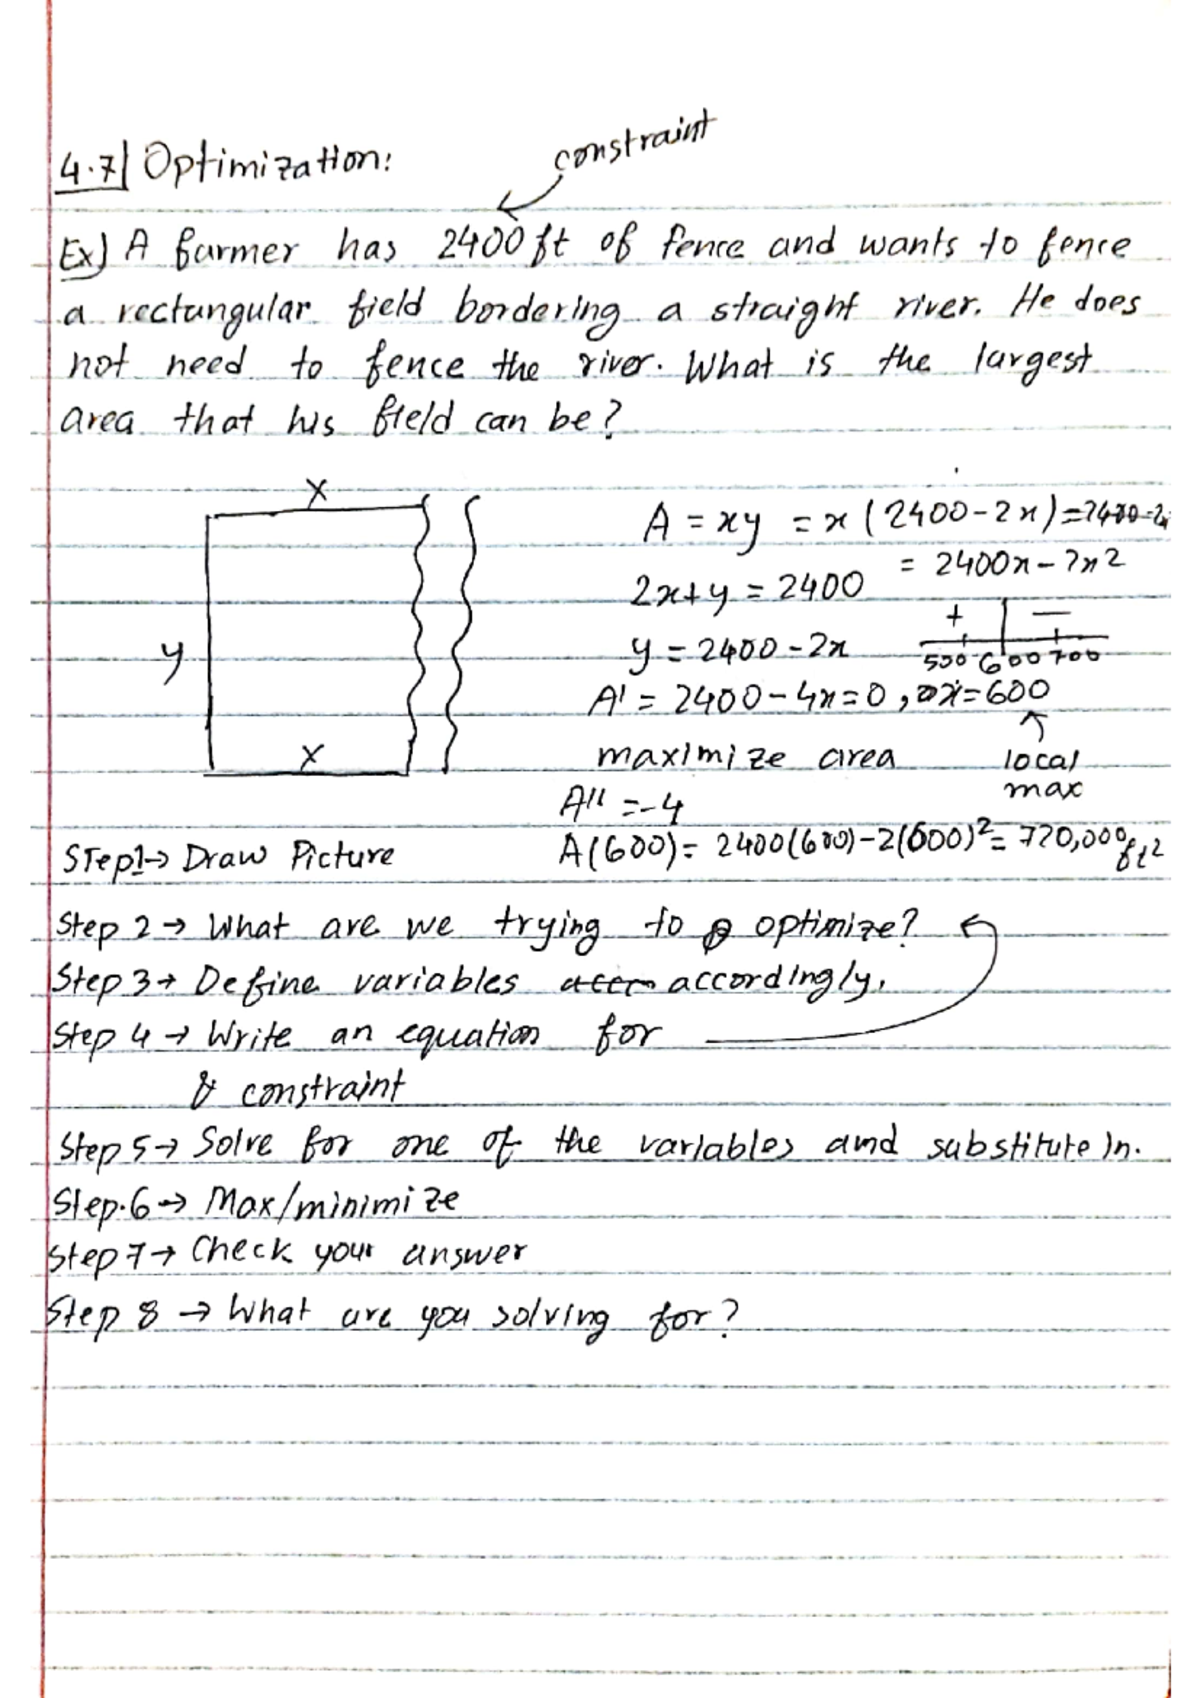 4.7| Optimization:
constraint
Ex) A farmer has 2400 ft of fence and wants to fence
a rectangular field bordering a straight river. He does
not need to fence the river. What is the largest
area that his field can be?
x
A = xy = x (2400-2x)=
= 2400x - 2x2
2x+y = 2400
+ —
y
y = 2400 - 2x
500 600 700
A' = 2400 - 4x = 0, x = 600
x
maximize area
local
max
A'' = -4
STep1→ Draw Picture
A(600) = 2400(600)-2(600)²= 720,000 ft2
Step 2 → What are we trying to optimize?
Step 3 → Define variables accordingly.
Step 4 → Write an equation for
& constraint
Step 5 → Solve for one of the variables and substitute In.
Step.6 → Max/minimize
Step 7 → Check your answer
Step 8 → What are you solving for?